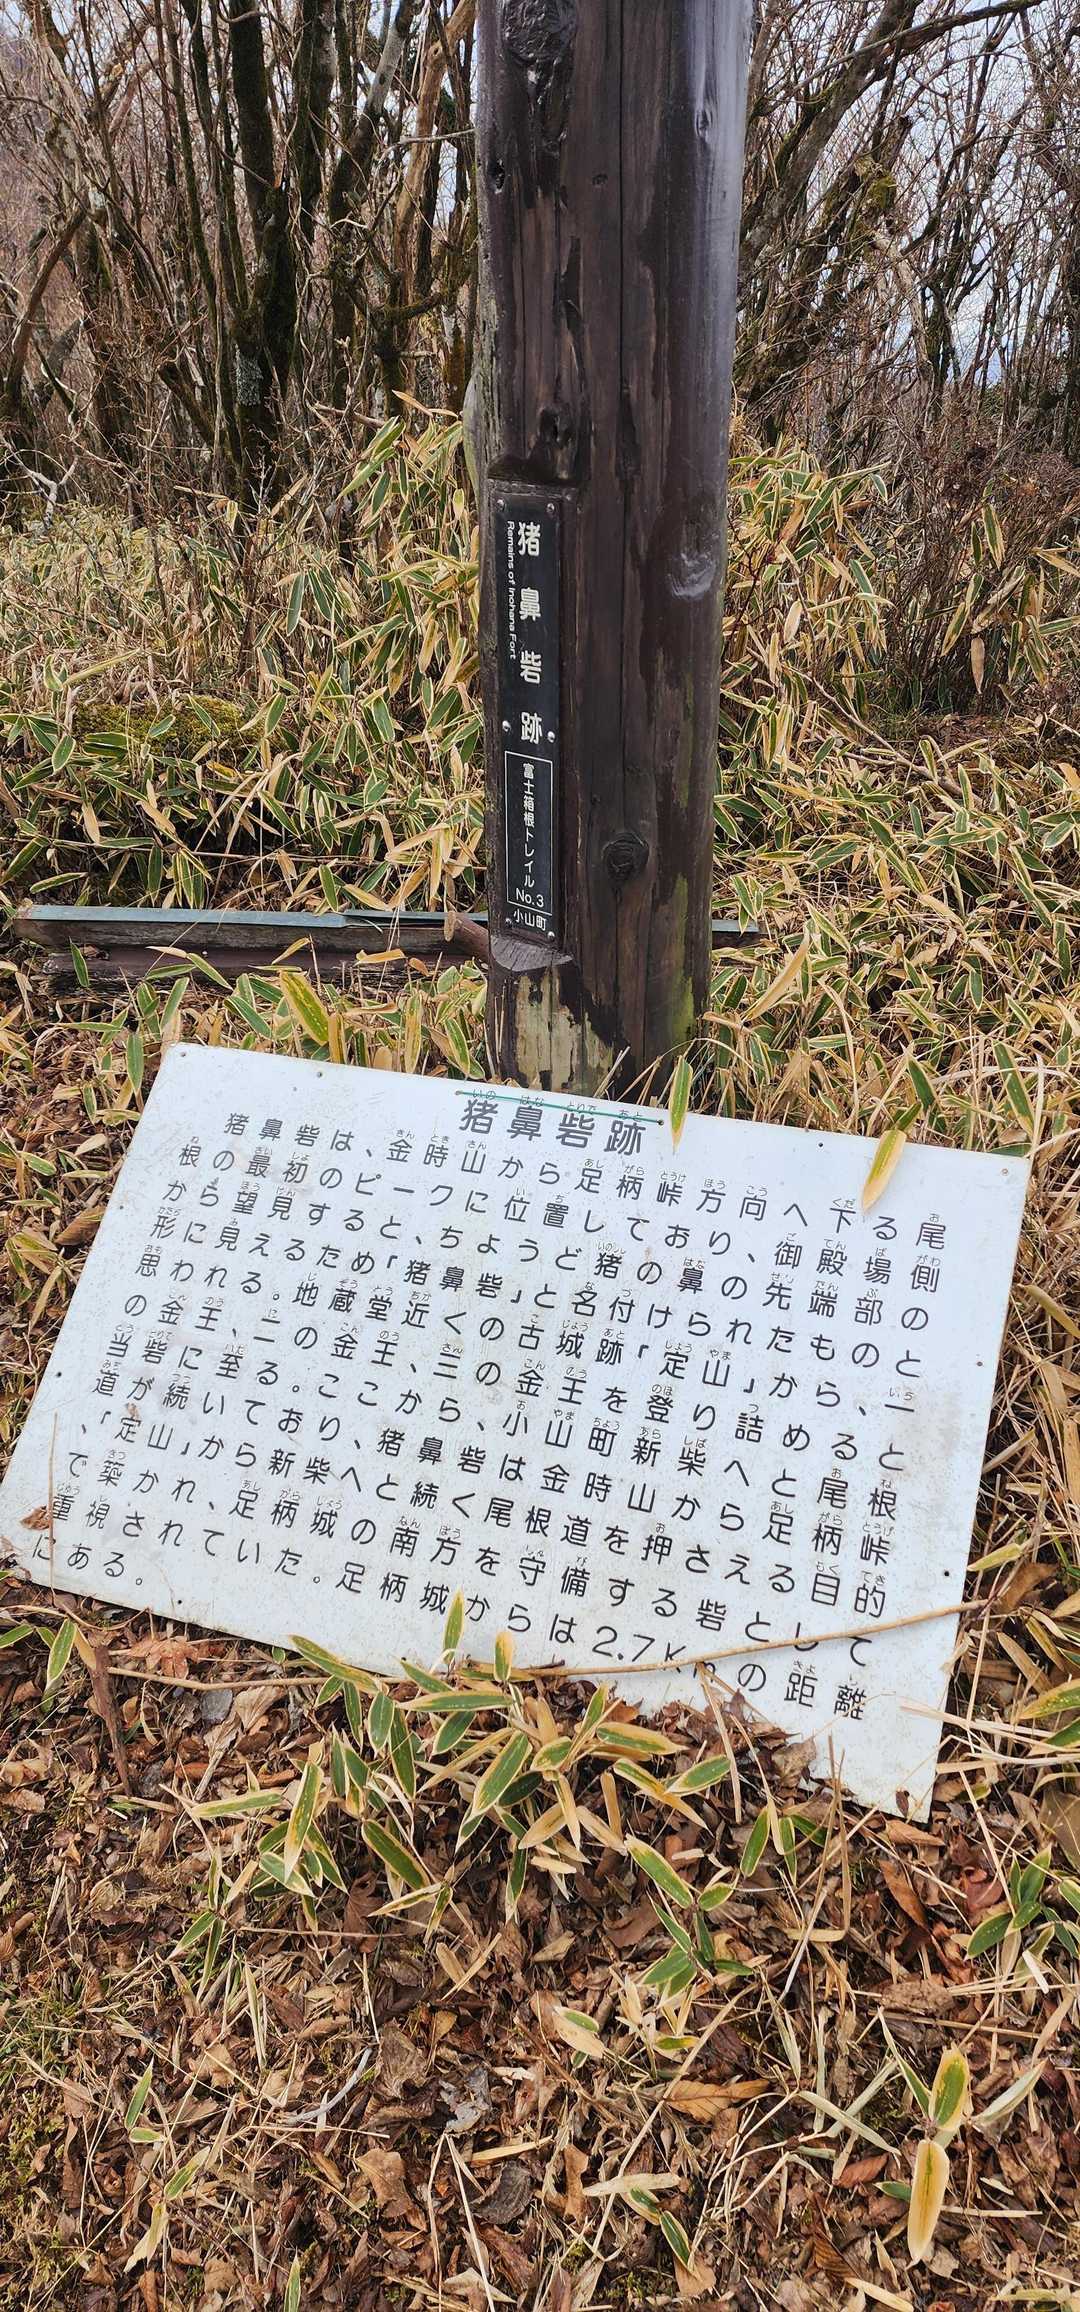 猪鼻砦跡
Remains of Inohana Fort
富士箱根トレイル
No.3
小山町
猪鼻砦跡
猪鼻砦は、金時山から足柄峠方向へ下る尾
根の最初のピークに位置しており、御殿場側
から望見すると、ちょうど猪の鼻の先端部の
形に見えるため「猪鼻砦」と名付けられたものと
思われる。地蔵堂近くの古城跡「定山」から、一
の金王、二の金王、三の金王を登り詰めると
当砦に至る。ここから、小山町新柴へと尾根
道が続いており、猪鼻砦は金時山から足柄峠
、「定山」から新柴へと続く尾根道を押さえる目的
で築かれ、足柄城の南方を守備する砦として
重視されていた。足柄城からは2.7Kmの距離
にある。